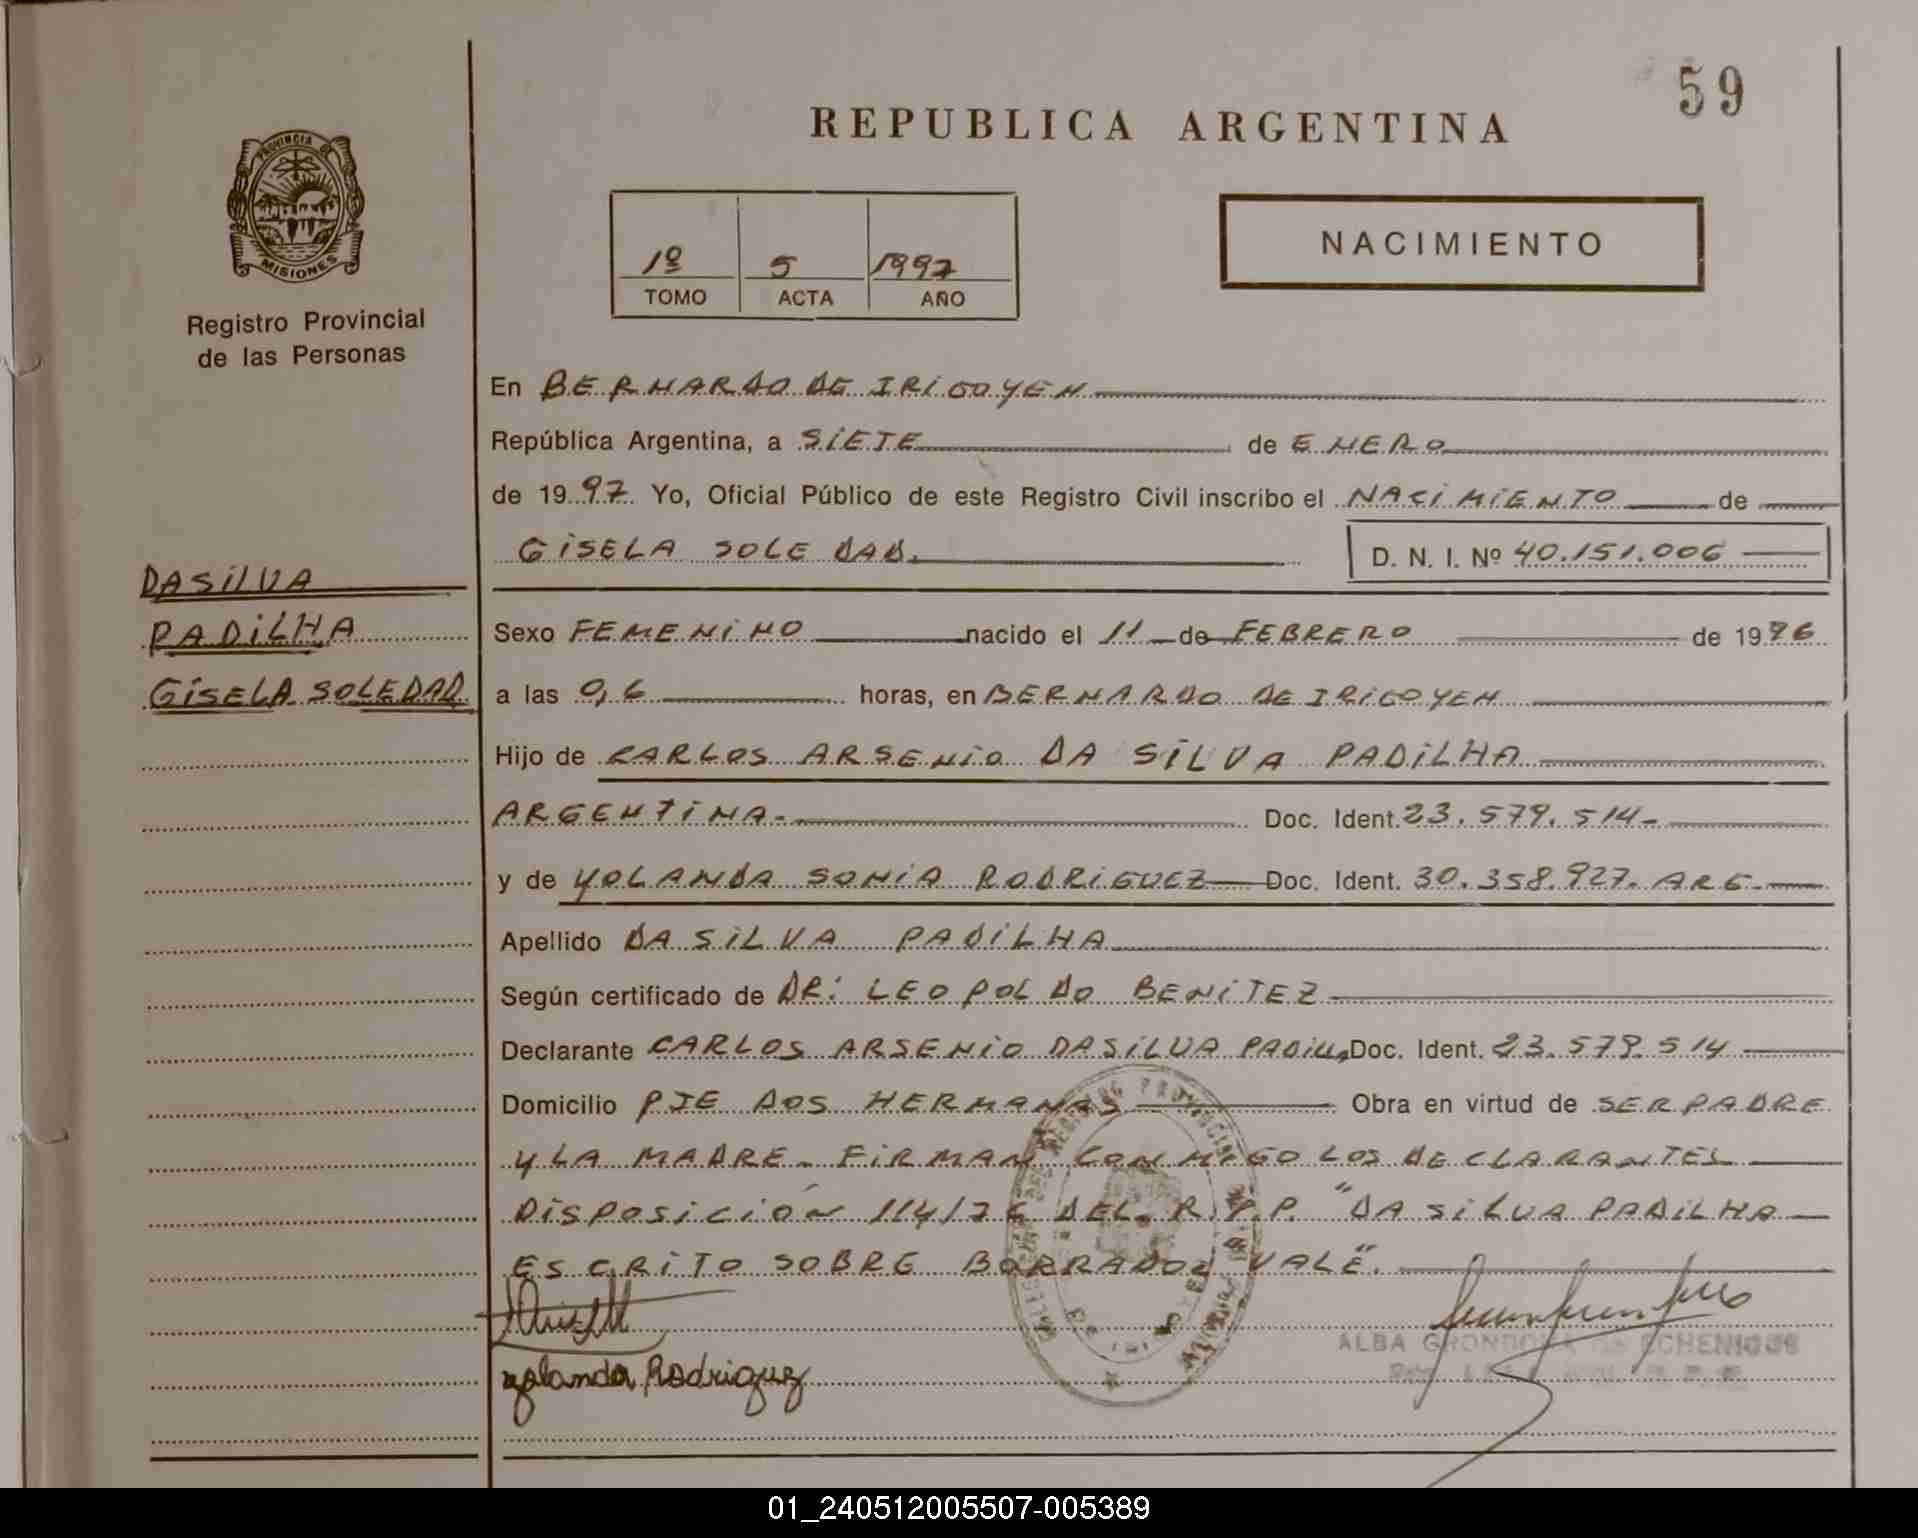 59
REPUBLICA ARGENTINA
PROVINCIA DE
MISIONES
Registro Provincial
de las Personas
1º 5 1997
TOMO ACTA AÑO
NACIMIENTO
En BERNARDO DE IRIGOYEN
República Argentina, a SIETE de ENERO
de 1997 Yo, Oficial Público de este Registro Civil inscribo el NACIMIENTO de
GISELA SOLEDAD. D. N. I. Nº 40.151.006
DASILVA
PADILHA
GISELA SOLEDAD
Sexo FEMENINO nacido el 11 de FEBRERO de 1996
a las 0,6 horas, en BERNARDO DE IRIGOYEN
Hijo de CARLOS ARSENIO DA SILVA PADILHA
ARGENTINA.- Doc. Ident. 23.579.514-
y de YOLANDA SONIA RODRIGUEZ Doc. Ident. 30.358.927. ARG.
Apellido DA SILVA PADILHA
Según certificado de DR: LEOPOLDO BENITEZ
Declarante CARLOS ARSENIO DASILVA PADILHA Doc. Ident. 23.579.514
Domicilio PJE DOS HERMANAS Obra en virtud de SER PADRE
Y LA MADRE. FIRMAN CONMIGO LOS DECLARANTES
DISPOSICIÓN 114/76 DEL R.P.P. "DA SILVA PADILHA
ESCRITO SOBRE BORRADO: VALE".
ALBA GRONDONA DE ECHENIQUE
Yolanda Rodriguez
01_240512005507-005389